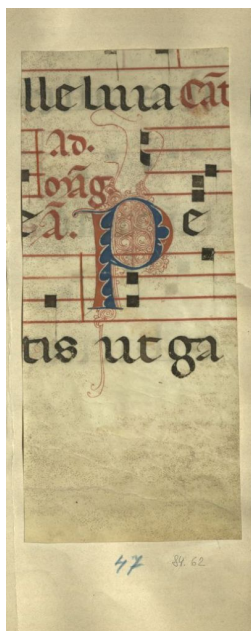 lleluia Cāt
Ad.
ā. Pe
tis ut ga
47 84.62